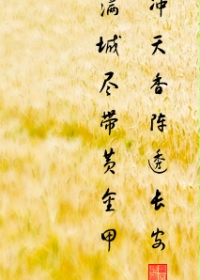 冲天香陈透长安
满城尽带黄金甲